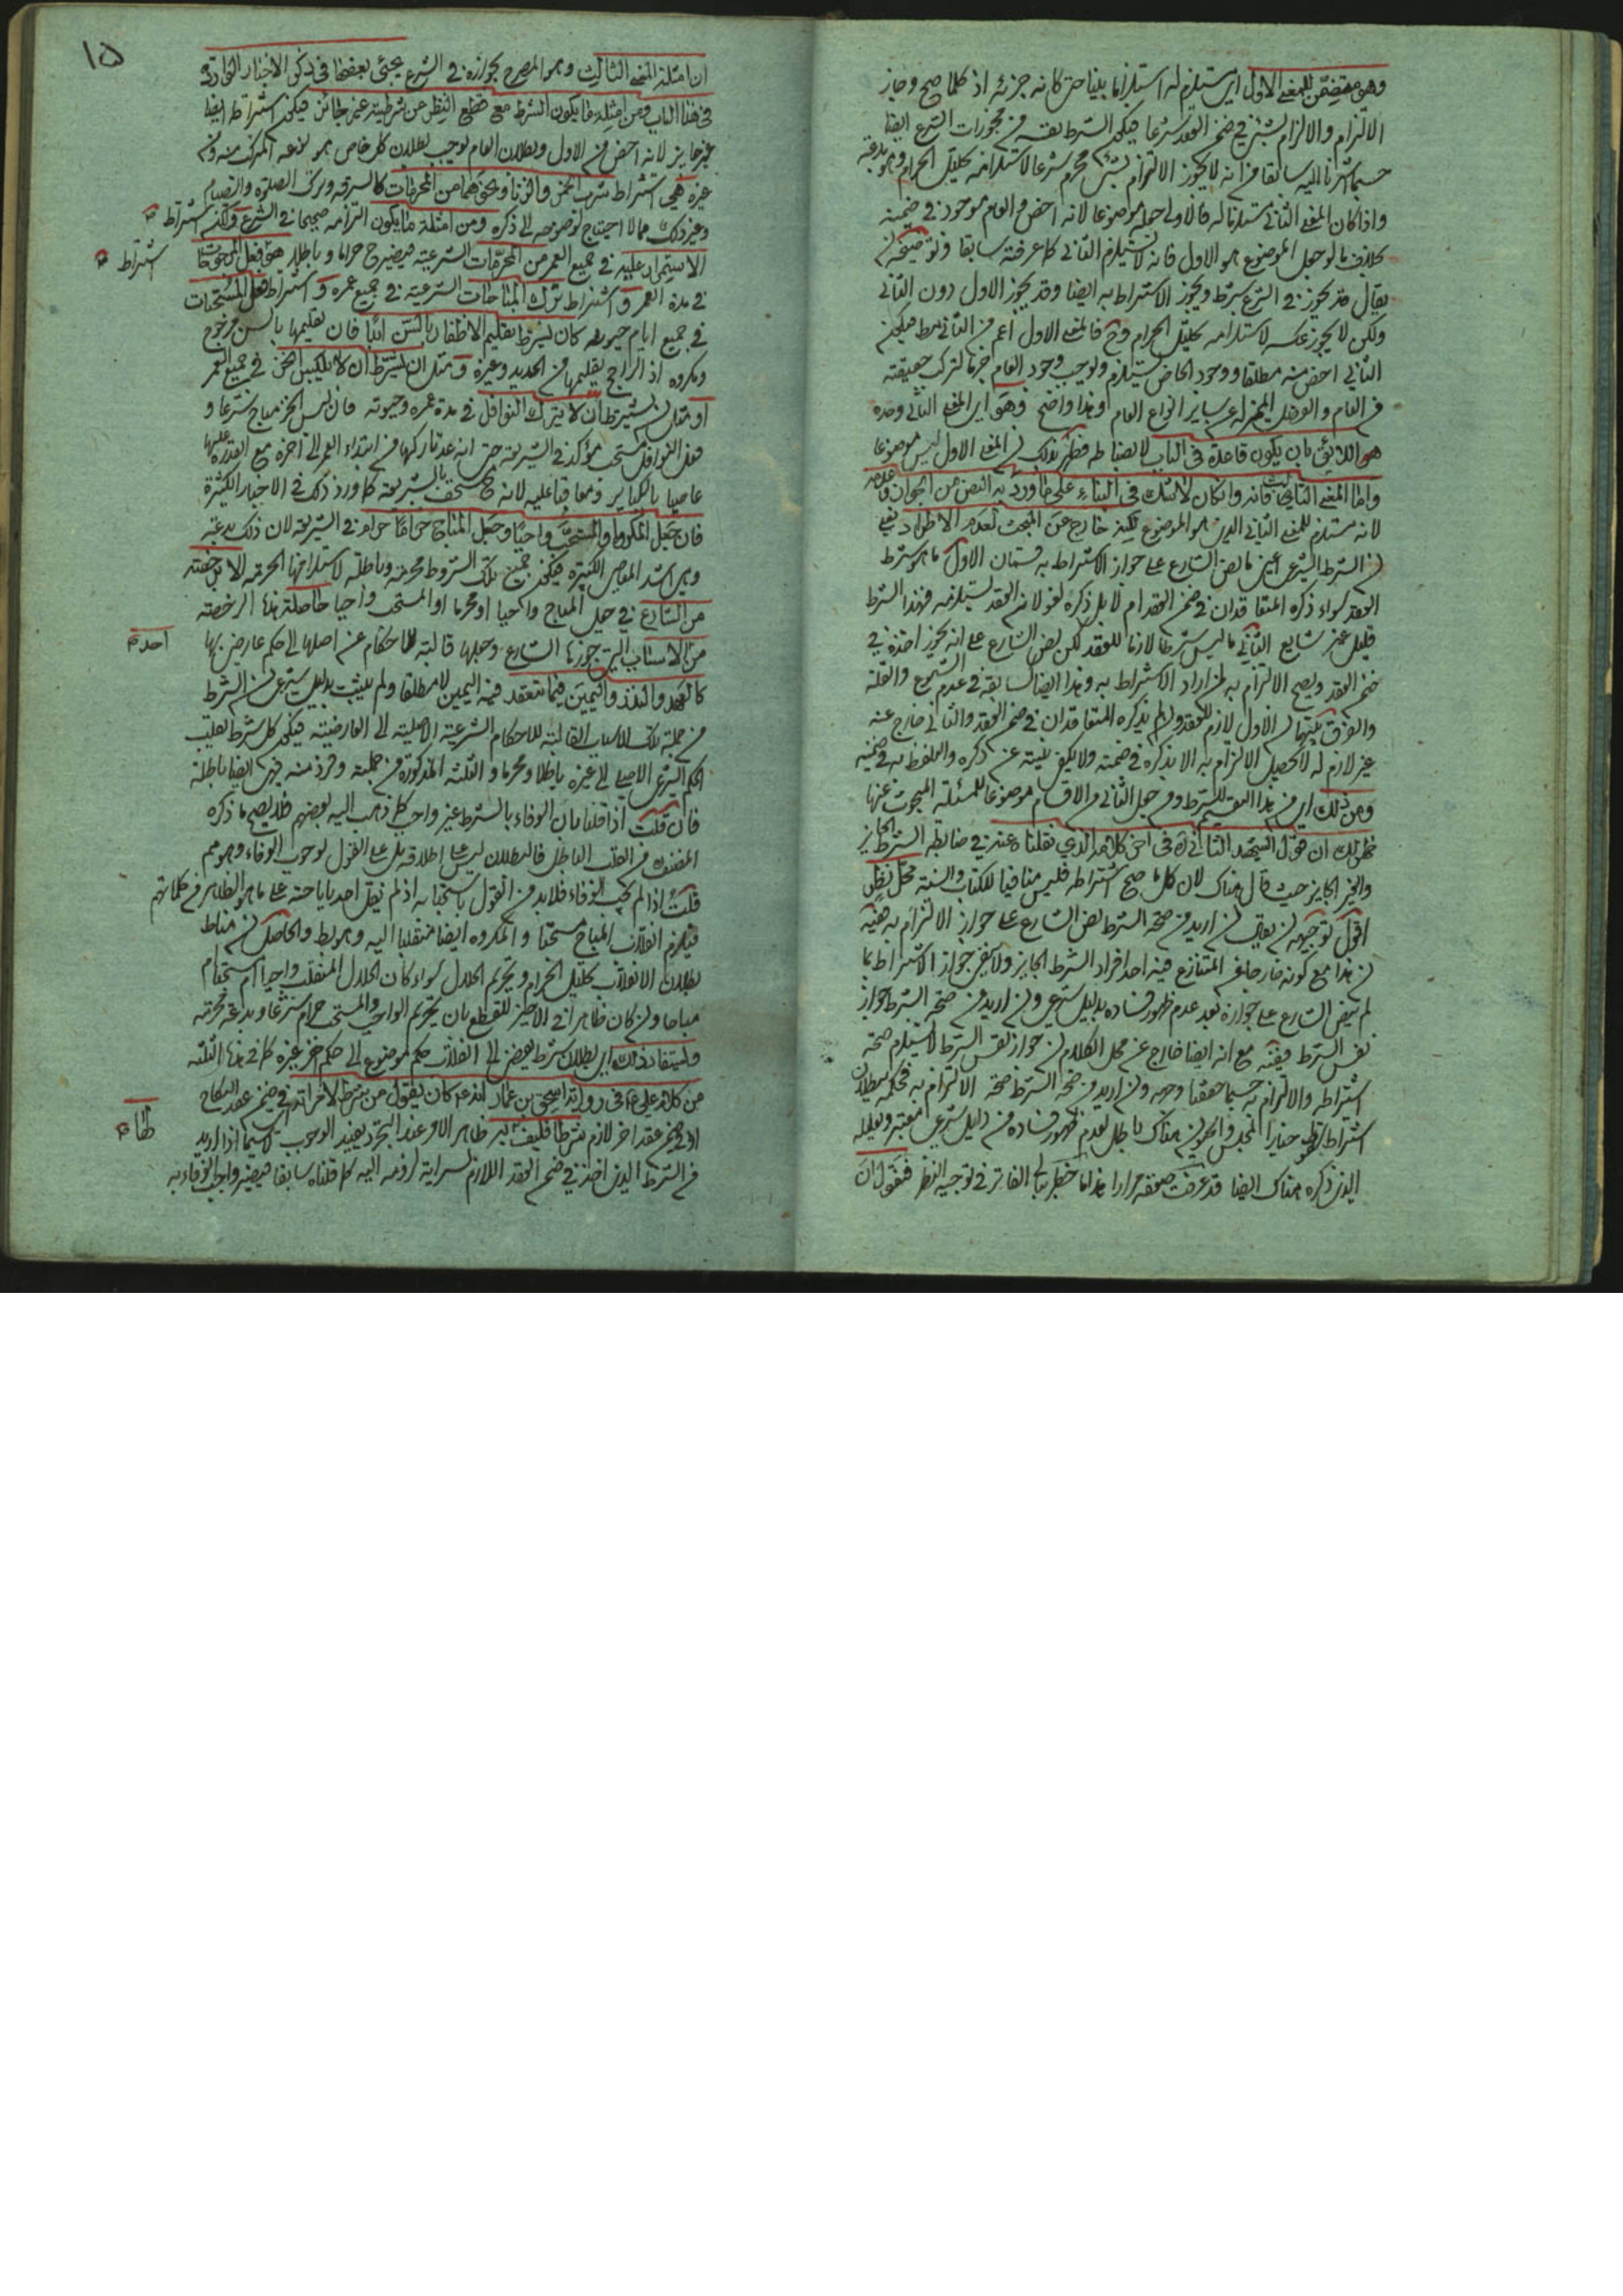 وهو متضمن للمعنى الاول اي مستلزم له استلزاما بينا حتى كانه جزئه اذ كلما صح وجاز
الالتزام والالزام بشئ في ضمن العقد شرعا فيكون الشرط نفسه من مجوزات الشرع ايضا
حسبما اشرنا اليه سابقا من انه لا يجوز الالتزام بشئ محرم شرعا لاستلزامه تحليل الحرام وهو بدعة
واذا كان المعنى الثاني مستلزما له فالاولى جعله موضوعا لانه اخص والعام موجود في ضمنه
بخلاف ما لو جعل الموضوع هو الاول فانه لا يستلزم الثاني كما عرفته سابقا
يقال قد يجوز في الشرع شرط ويجوز الاشتراط به ايضا وقد يجوز الاول دون الثاني
ولكن لا يجوز عكسه لاستلزامه تحليل الحرام وح فالمعنى الاول اعم من الثاني مط فيكون
الثاني اخص منه مطلقا ووجود الخاص يستلزم ويوجب وجود العام جزما لتركب حقيقته
من العام والفصل المميز له عن ساير انواع العام وهذا واضح وهو اي المعنى الثاني وحده
هو اللائق بان يكون قاعدة في الباب لانضباطه فظهر بذلك ان المعنى الاول ليس موضوعا
واما المعنى الثالث فانه وان كان لا شك في البناء على ما ورد به النص من الجواز وعدمه
لانه مستلزم للمعنى الثاني الذي هو الموضوع لكنه خارج عن المبحث لعدم الاطراد يعني
ان الشرط الشرعي اعني ما نص الشارع على جواز الاشتراط به قسمان الاول ما هو شرط
العقد سواء ذكره المتعاقدان في ضمن العقد ام لا بل ذكره لغو لان العقد يستلزمه فهذا الشرط
قليل غير شايع الثاني ما ليس شرطا لازما للعقد لكن نص الشارع على انه يجوز اخذه في
ضمن العقد ويصح الالتزام به لمن اراد الاشتراط به وهذا ايضا كسابقه في عدم الشيوع والقلة
والفرق بينهما ان الاول لازم للعقد وان لم يذكره المتعاقدان في ضمن العقد والثاني خارج عنه
غير لازم له لا يحصل الالتزام به الا بذكره في ضمنه ولا يكفي نيته عن ذكره والتلفظ به في ضمنه
ومن ذلك اي من هذا التقسيم للشرط ومن جعل الثاني من الاقسام موضوعا للمسئلة المبحوث عنها
ظهر لك ان قول الشهيد الثاني ره في اخر كلامه الذي نقلناه عنه في ضابطة الشرط الجايز
والغير الجايز حيث قال هناك لان كل ما صح اشتراطه فليس منافيا للكتاب والسنة محل نظر
اقول توجيهه ان يقال ان اريد من صحة الشرط نص الشارع على جواز الالتزام به ففيه
ان هذا مع كونه خارجا عن المتنازع فيه احد افراد الشرط الجايز ولا ينفي جواز الاشتراط بما
لم ينص الشارع على جوازه بعد عدم ظهور فساده بدليل شرعي وان اريد من صحة الشرط جواز
نفس الشرط ففيه مع انه ايضا خارج عن محل الكلام ان جواز نفس الشرط لا يستلزم صحة
اشتراطه والالتزام به حسبما حققنا وجهه وان اريد من صحة الشرط صحة الالتزام به فحكمه ببطلان
اشتراط سقوط خيار المجلس والحيوان هناك باطل لعدم ظهور فساده من دليل شرعي معتبر وتعليله
الذي ذكره هناك ايضا قد عرفت ضعفه مرارا هذا ما خطر ببالي الفاتر في توجيه النظر فنقول ان
١٥
ان امثلة المعنى الثالث وهو المصرح بجوازه في الشرع يجئ بعضها في ذكر الاخبار الواردة
في هذا الباب ومن امثلة ما يكون الشرط مع قطع النظر عن شرطيته غير جائز فيكون اشتراطه ايضا
غير جايز لانه اخص من الاول وبطلان العام يوجب بطلان كل خاص هو نوعه المركب منه ومن
غيره هي اشتراط شرب الخمر والزنا ونحوهما من المحرمات كالسرقة وترك الصلوة والصيام
وغير ذلك مما لا احتياج لوضوحه الى ذكره ومن امثلة ما يكون التزامه صحيحا في الشرع ولكن اشتراط
الاستمرار عليه في جميع العمر من المحرمات الشرعية فيصير ح حراما وباطلا هو فعل المرجوحات
اشتراط
في مدة العمر واشتراط ترك المباحات الشرعية في جميع عمره واشتراط فعل المستحبات
في جميع ايام حيوته كان يشترط تقليم الاظفار بالسن ابدا فان تقليمها بالسن مرجوح
ومكروه اذ الراجح تقليمها من الحديد وغيره ومثل ان يشترط ان لا يلبس الخز في جميع العمر
او مثل ان يشترط ان لا يترك النوافل في مدة عمره وحيوته فان لبس الخز مباح شرعا و
فعل النوافل مستحب مؤكد في الشريعة حتى انه عد تاركها من ابتداء العمر الى اخره مع القدرة عليها
عاصيا بالكباير ومعاقبا عليه لانه ح مستخف بالشريعة كما ورد ذلك في الاخبار الكثيرة
فان جعل المكروه او المستحب واجبا وجعل المباح حراما حرام في الشريعة لان ذلك بدعة
وهي اشد المعاصي الكبيرة فيكون جميع تلك الشروط محرمة وباطلة لاستلزامها الحرمة الا برخصة
من الشارع في جعل المباح واجبا او محرما او المستحب واجبا حاصلة هذا الرخصة
من الاسباب التي جوزها الشارع وجعلها قالبة للاحكام عن اصلها الى حكم عارض بها
احد
كالعهد والنذر واليمين فيما تنعقد فيه اليمين لا مطلقا ولم يثبت بدليل شرعي ان الشرط
من جملة تلك الاسباب القالبة للاحكام الشرعية الاصلية الى العارضية فيكون كل شرط يقلب
الحكم الشرعي الاصلي الى غيره باطلا ومحرما و الثلثة المذكورة من جملته وفرد منه فهي ايضا باطلة
فان قلت اذا قلنا بان الوفاء بالشرط غير واجب كما ذهب اليه بعضهم فلا يصح ما ذكره
المصنف من القلب الباطل فالبطلان ليس على اطلاقه بل على القول بوجوب الوفاء وهو مم
قلت اذا لم يجب الوفاء فلا بد من القول باستحبابه اذ لم يقل احد باباحته على ما هو الظاهر من كلماتهم
فيلزم انقلاب المباح مستحبا والمكروه ايضا منقلبا اليه وهو بط والحاصل ان مناط
بطلان الانقلاب تحليل الحرام وتحريم الحلال سواء كان الحلال المنقلب واجبا ام مستحبا ام
مباحا وان كان ظاهرا في الاخير للقطع بان تحريم الواجب والمستحب حرام شرعا وبدعة محرمة
وليستفاد ذلك اي بطلان شرط يفضي الى انقلاب حكم موضوع الى حكم اخر غيره كما في هذه الثلثة
من كلام علي ع في رواية اسحق بن عمار انه ع كان يقول من شرط لامراته في ضمن عقد النكاح
او في ضمن عقد اخر لازم شرطا فليف به فان ظاهر الامر عند التجرد يفيد الوجوب لا سيما اذا اريد
لها
من الشرط الذي اخذ في ضمن العقد اللازم لسراية لزومه اليه كما قلناه سابقا فيصير واجب الوفاء به